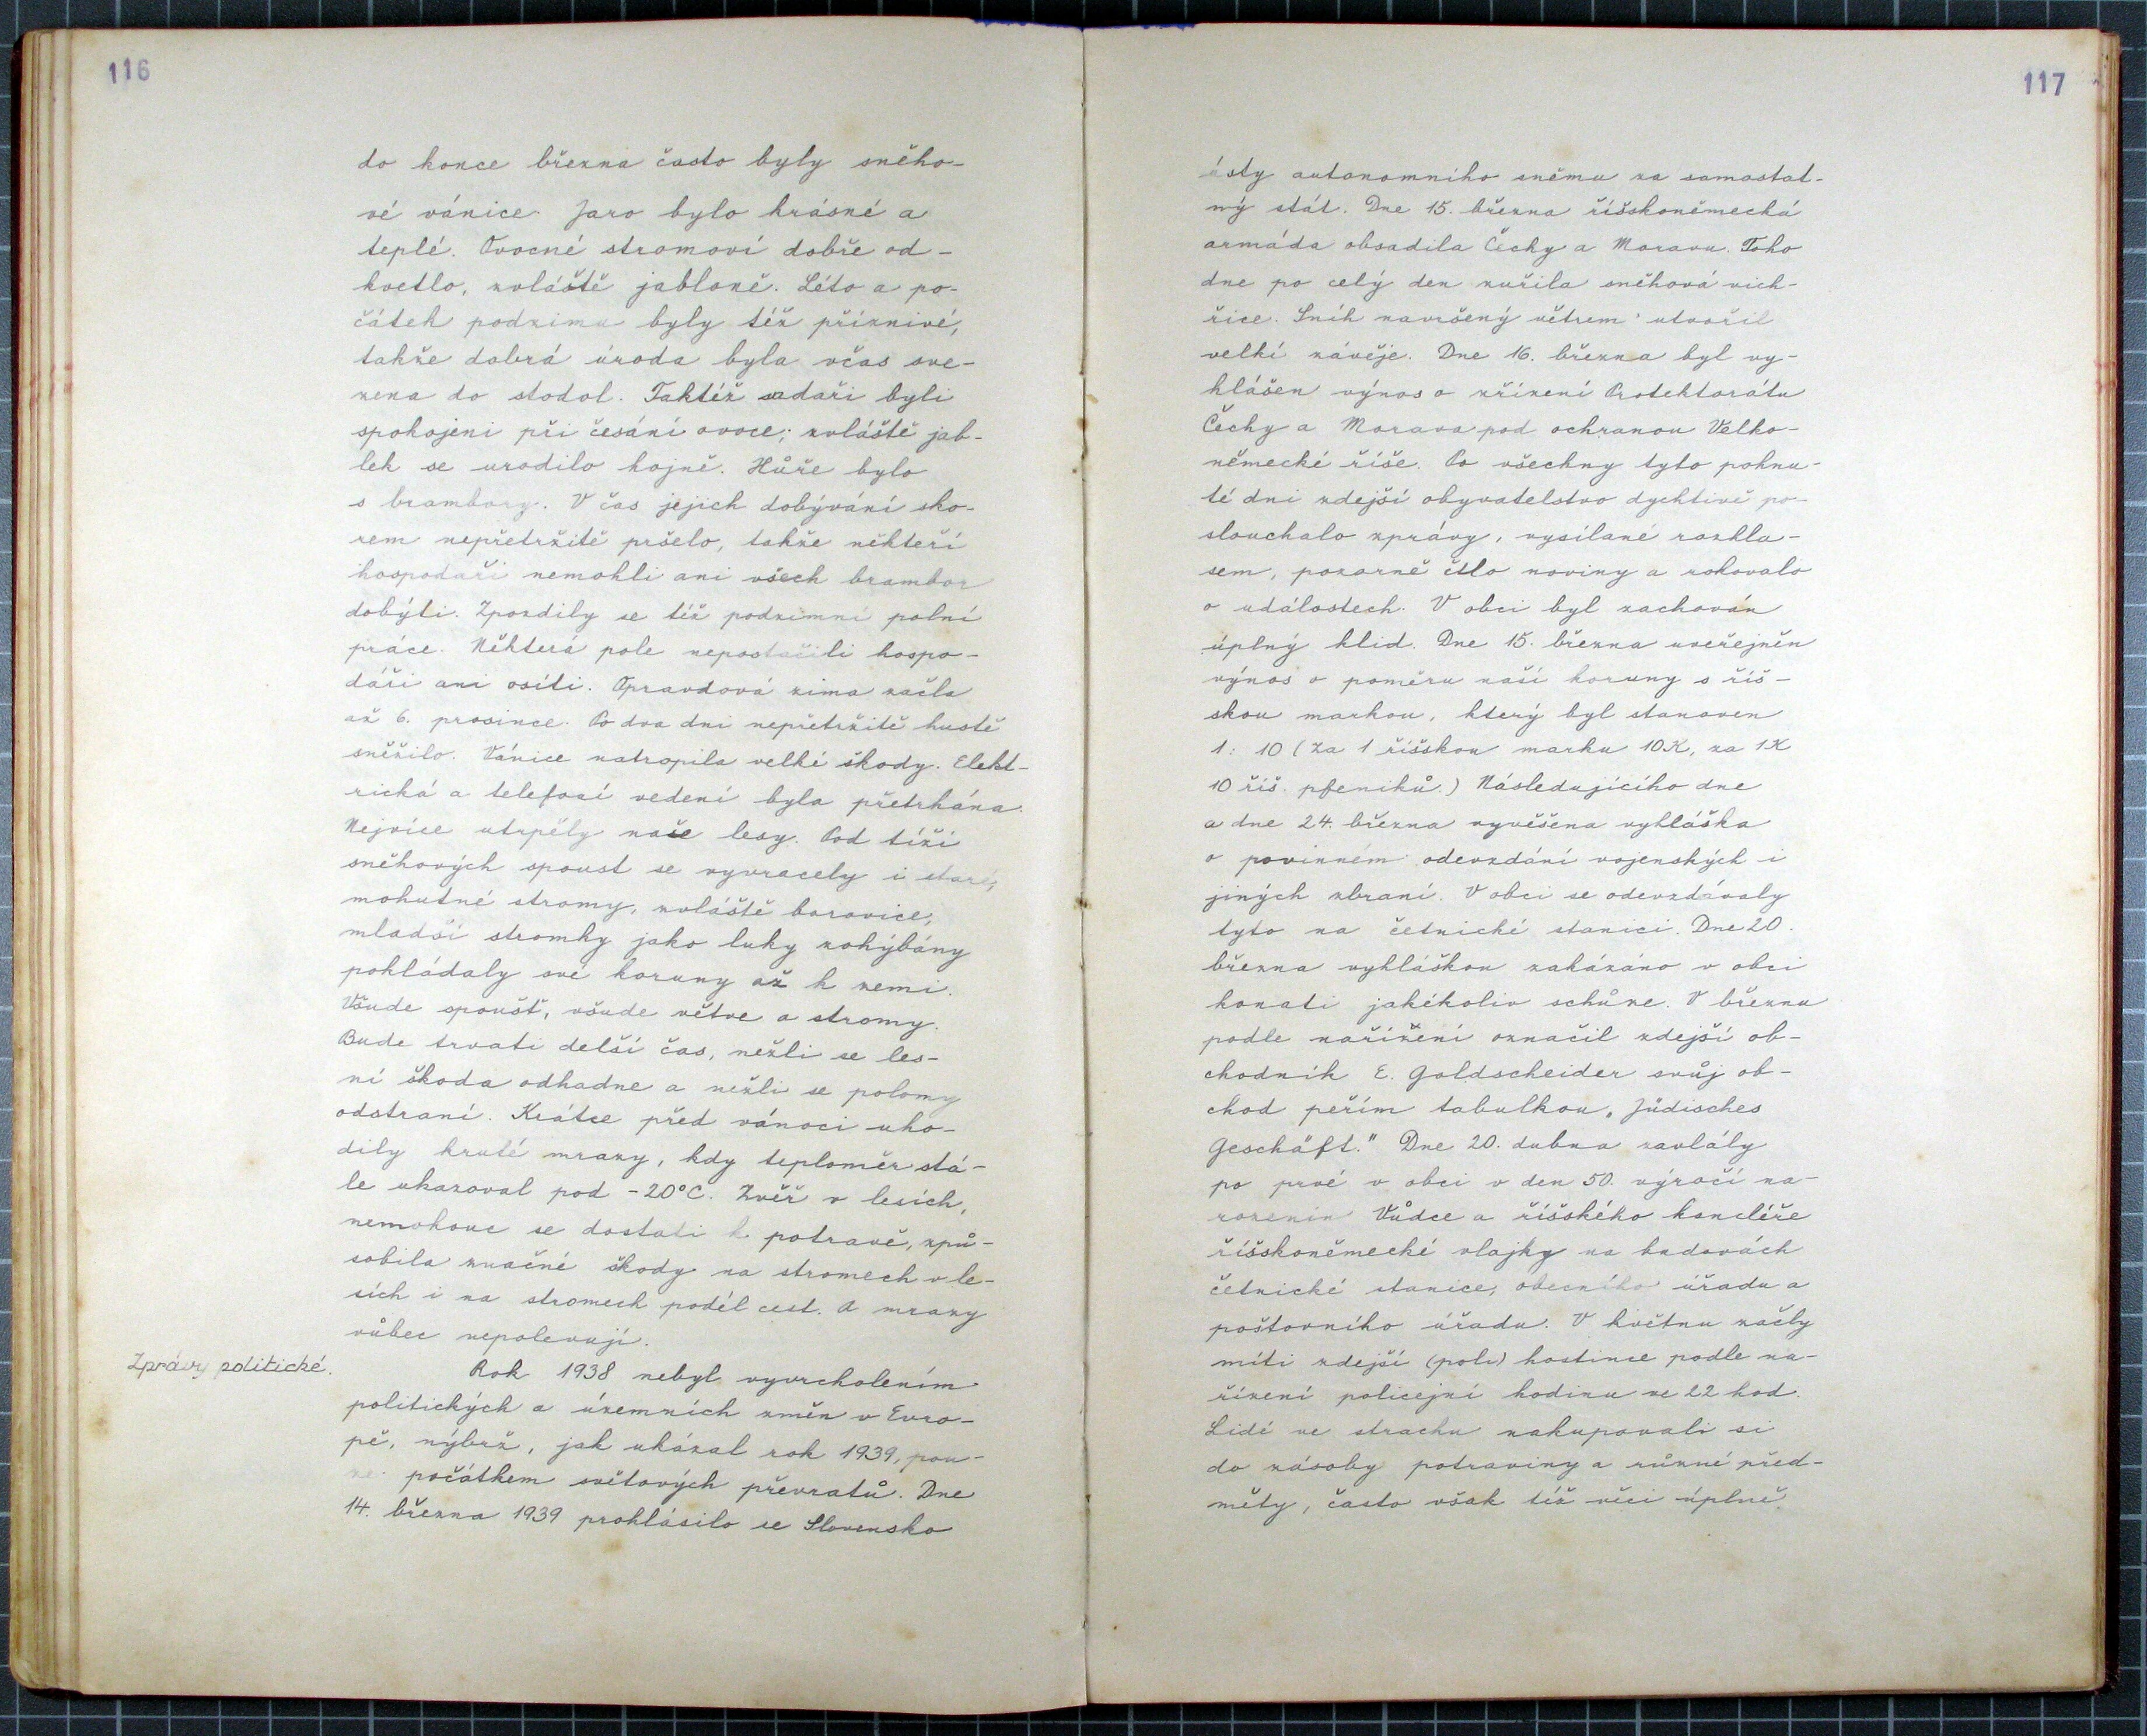 116
do konce března často byly sněho-
vé vánice. Jaro bylo krásné a
teplé. Ovocné stromoví dobře od-
kvetlo, zvláště jabloně. Léto a po-
čátek podzimu byly též příznivé,
takže dobrá úroda byla včas sve-
zena do stodol. Taktéž sadaři byli
spokojeni při česání ovoce; zvláště jab-
lek se urodilo hojně. Hůře bylo
s brambory. V čas jejich dobývání sko-
rem nepřetržitě pršelo, takže někteří
hospodáři nemohli ani všech brambor
dobýti. Zpozdily se též podzimní polní
práce. Některá pole nepostačili hospo-
dáři ani osíti. Opravdová zima začla
až 6. prosince. Po dva dni nepřetržitě hustě
sněžilo. Vánice natropila velké škody. Elekt-
rická a telefoní vedení byla přetrhána.
Nejvíce utrpěly naše lesy. Pod tíží
sněhových spoust se vyvracely i staré,
mohutné stromy, zvláště borovice,
mladší stromky jako luky zohýbány
pokládaly své koruny až k zemi.
Všude spoušť, všude větve a stromy.
Bude trvati delší čas, nežli se les-
ní škoda odhadne a nežli se polomy
odstraní. Krátce před vánoci uho-
dily kruté mrazy, kdy teploměr stá-
le ukazoval pod -20°C. Zvěř v lesích,
nemohouc se dostati k potravě, způ-
sobila značné škody na stromech v le-
sích i na stromech podél cest. A mrazy
vůbec nepolevují.
Zprávy politické.
Rok 1938 nebyl vyvrcholením
politických a územních změn v Evro-
pě, nýbrž, jak ukázal rok 1939, pou-
ze počátkem světových převratů. Dne
14. března 1939 prohlásilo se Slovensko
117
ústy autonomního sněmu za samostat-
ný stát. Dne 15. března říšskoněmecká
armáda obsadila Čechy a Moravu. Toho
dne po celý den zuřila sněhová vich-
řice. Sníh navršený větrem utvořil
velké závěje. Dne 16. března byl vy-
hlášen výnos o zřízení Protektorátu
Čechy a Morava pod ochranou Velko-
německé říše. Po všechny tyto pohnu-
té dni zdejší obyvatelstvo dychtivě po-
slouchalo zprávy, vysílané rozhla-
sem, pozorně čtlo noviny a rokovalo
o událostech. V obci byl zachován
úplný klid. Dne 15. března uveřejněn
výnos o poměru naší koruny s říš-
skou markou, který byl stanoven
1:10 (za 1 říšskou marku 10 K, za 1 K
10 říš. pfeniků.) Následujícího dne
a dne 24. března vyvěšena vyhláška
o povinném odevzdání vojenských i
jiných zbraní. V obci se odevzdávaly
tyto na četnické stanici. Dne 20.
března vyhláškou zakázáno v obci
konati jakékoliv schůze. V březnu
podle nařížení označil zdejší ob-
chodník E. Goldscheider svůj ob-
chod peřím tabulkou „Jüdisches
Geschäft." Dne 20. dubna zavlály
po prvé v obci v den 50. výročí na-
rozenin Vůdce a říšského kancléře
říšskoněmecké vlajky na budovách
četnické stanice, obecního úřadu a
poštovního úřadu. V květnu začly
míti zdejší (polc) hostince podle na-
řízení policejní hodinu ve 22 hod.
Lidé ve strachu nakupovali si
do zásoby potraviny a různé před-
měty, často však též věci úplně